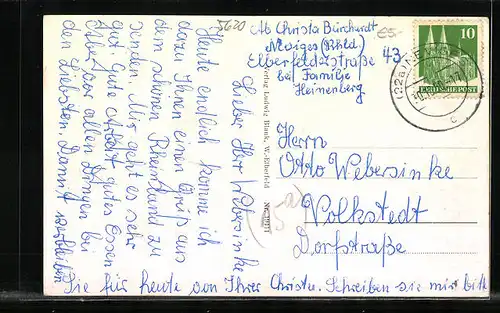 5620
€5-
Ab Christa Bürchardt
Neviges (Rhld.)
Elberfelderstraße 43
bei Familie
Heinenberg
10
DEUTSCHE POST
(22a) NEVIGES
c
Herrn
Otto Webersinke
Volkstedt
Dorfstraße
Verlag Ludwig Blank, W.-Elberfeld
5a)
Lieber Herr Webersinke
Heute endlich komme ich
dazu Ihnen einen Gruß aus
dem schönen Rheinland zu
senden. Mir geht es sehr
gut. Gute Arbeit gutes Essen
Aber vor allen Dingen bei
den Liebsten. Damit verbleibe
Sie für heute von Ihrer Christa. Schreiben sie mir bitte